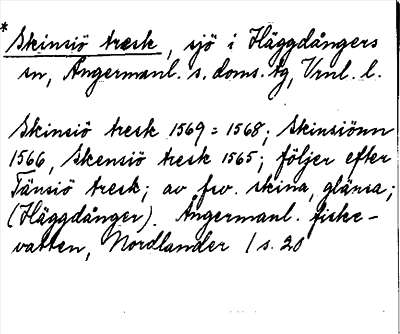 * Skinsiö træsk, sjö i Häggdångers
sn, Ångermanl. s. doms. tg, Vrnl. l.
Skinsiö tresk 1569 = 1568; Skinsiönn
1566, Skensiö tresk 1565; följer efter
Tänsiö tresk; av fsv. skina, glänsa;
(Häggdånger). Ångermanl. fiske-
vatten, Nordlander 1 s. 20